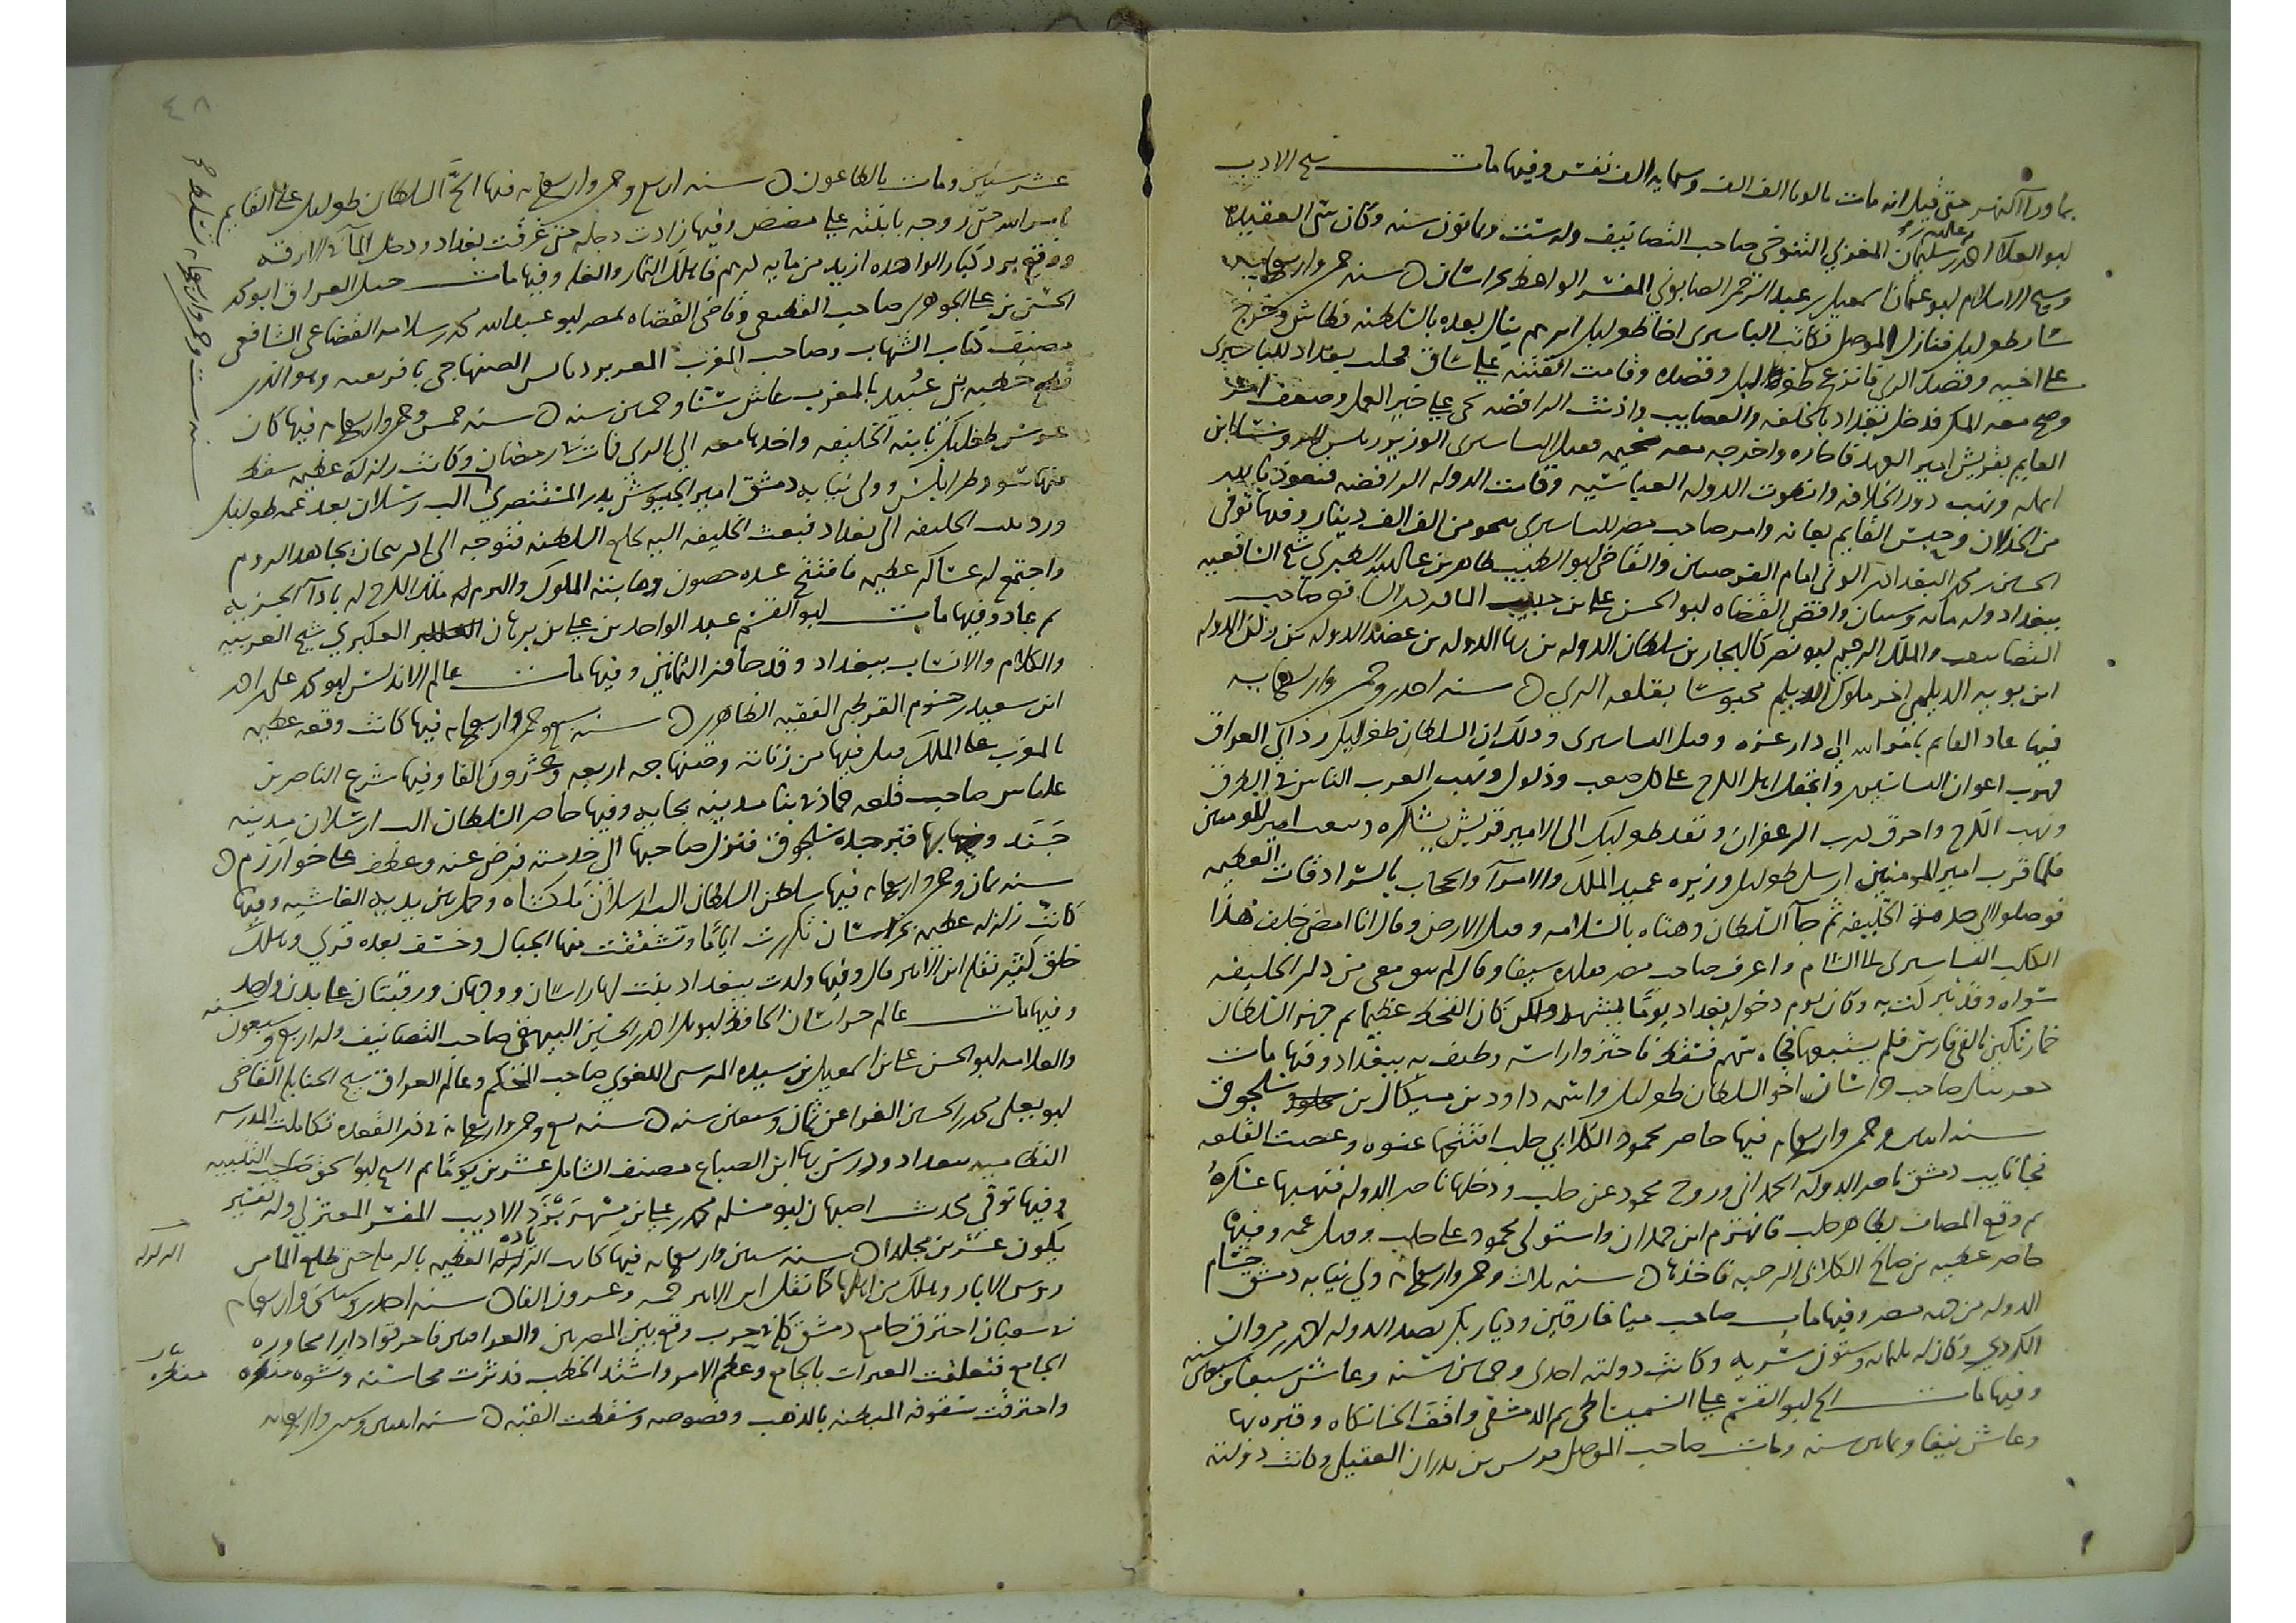 بما ورآ النهر حتى قيل انه مات بالوبا الف الف وستمايه الف نفس وفيها مات شيخ الادب
ابو العلا احمد بن سليمان المعري التنوخي صاحب التصانيف وله ست وثمانون سنه وكان سئ العقيده
وشيخ الاسلام ابو عثمان اسمعيل بن عبد الرحمن الصابوني المفسر الواعظ بخراسان سنه خمسين واربعمايه
سار طغرلبك فنازل الموصل فكاتب البساسيري اخا طغرلبك ابرهيم ينال يعده بالسلطنه فطاش وخرج
على اخيه وقصد الري فانزعج طغرلبك وقصده وقامت الفتنه على ساق فخلت بغداد للبساسيري
فدخل بغداد والعصايب واذنت الرافضه بحي على خير العمل وضعف امر
القايم بقريش امير العرب فاجاره واخرجه معه الى مخيمه وقتل البساسيري الوزير رئيس الرؤسا ابن
المسلمه ونهب دور الخلافه وانطوت الدوله العباسيه وقامت الدوله الرافضه فنعوذ بالله
من الخذلان وحبس القايم بعانه وامر صاحب مصر للبساسيري بنحو من الف الف دينار وفيها توفى
الحسين بن محمد البغدادي الوني امام الفرضيين والقاضي ابو الطيب طاهر بن عبد الله الطبري شيخ الشافعيه
ببغداد وله مائه وسنتان واقضى القضاه ابو الحسن علي بن حبيب الماوردي الشافعي صاحب
التصانيف والملك الرحيم ابو نصر كاليجار بن سلطان الدوله بن بها الدوله بن عضد الدوله بن ركن الدوله
ابن بويه الديلمي اخر ملوك الديلم محبوسا بقلعه الري سنه احدى وخمسين واربعمايه
فيها عاد القايم بامر الله الى دار عزه وقتل البساسيري وذلك ان السلطان طغرلبك رد الى العراق
فهرب اعوان البساسيري وانجفل اهل الكرخ على كل صعب وذلول ونهب العرب الناس في الطرق
ونهب الكرخ واحرق درب الزعفران ونفذ طغرلبك الى الامير قريش يشكره وبعث امير المومنين
فلما قرب امير المومنين ارسل طغرلبك وزيره عميد الملك والامرآ والحجاب بالسرادقات العظيمه
فوصلوا الى خدمة الخليفه ثم جآ السلطان وهناه بالسلامه وقبل الارض وقال انا امضى خلف هذا
الكلب البساسيري الى الشام واعرف صاحب مصر فقلده سيفا وقال لم يبق معي من دار الخليفه
سواه وقد تبركت به وكان يوم دخوله بغداد يوما مشهودا ولكن كان القحط عظيما ثم جهز السلطان
خمارتكين بالفي فارس فلم يشعروا سهم فسقط فاحتزوا راسه وطيف به ببغداد وفيها مات
جغربيك صاحب خراسان اخو السلطان طغرلبك واسمه داود بن ميكال بن سلجوق
سنه اثنتين وخمسين واربعمايه فيها حاصر محمود الكلابي حلب افتتحها عنوه وعصت القلعه
فجا نايب دمشق ناصر الدوله الحمداني وروح محمود عن حلب ودخلها ناصر الدوله فنهبها عسكره
ثم وقع المصاف بظاهر حلب فانهزم ابن حمدان واستولى محمود على حلب وقتل عمه وفيها
حاصر عطيه بن صالح الكلابي الرحبه فاخذها سنه ثلاث وخمسين واربعمايه ولي نيابه دمشق حسام
الدوله من جهه مصر وفيها مات صاحب ميافارقين وديار بكر نصر الدوله احمد بن مروان
الكردي وكان له ثلثمايه وستون سريه وكانت دولته احدى وخمسين سنه وعاش سبعا وسبعين سنه
وفيها مات الشيخ ابو القسم علي السميساطي ثم الدمشقي واقف الخانكاه وقبره بها
وعاش نيفا وثمانين سنه ومات صاحب الموصل قريش بن بدران العقيلي وكانت دولته
٤٨
عشر سنين ومات بالطاعون سنه اربع وخمسين واربعمايه فيها الحَّ السلطان طغرلبك على القايم
بامر الله حتى زوجه بابنته على مضض وفيها زادت دجله حتى غرقت بغداد ودخل المآ الازقه
ووقع برد كبار الواحده ازيد من مايه درهم فاهلك الثمار والغله وفيها مات مسند العراق ابو محمد
الحسن بن علي الجوهري صاحب القطيعي وقاضي القضاه بمصر ابو عبد الله محمد بن سلامه القضاعي الشافعي
مصنف كتاب الشهاب وصاحب المغرب المعز بن باديس الصنهاجي بافريقيه وهو الذي
قطع خطبه بني عُبيد بالمغرب عاش ستا وخمسين سنه سنه خمس وخمسين واربعمايه فيها كان
عرس طغرلبك بابنه الخليفه واخدها معه الى الري فمات في رمضان وكانت زلزله عظيمه سقط
منها سور طرابلس وولى نيابه دمشق امير الجيوش بدر المستنصري الب رسلان بعد عمه طغرلبك
ورد بنت الخليفه الى بغداد فبعث الخليفه اليه بخلع السلطنه فتوجه الى اذربيجان يجاهد الروم
واجتمع له عساكر عظيمه فافتتح عده حصون وهابته الملوك والتزم له ملك الكرج له بادآ الجزيه
ثم عاد وفيها مات ابو القسم عبد الواحد بن علي بن برهان العكبري شيخ العربيه
والكلام والانساب ببغداد وقد جاوز الثمانين وفيها مات عالم الاندلس ابو محمد علي بن احمد
ابن سعيد بن حزم القرطبي الفقيه الظاهري سنه سبع وخمسين واربعمايه فيها كانت وقعه عظيمه
بالمغرب على الملك قتل فيها من زناته وصنهاجه اربعه وعشرون الفا وفيها شرع الناصر بن
علناس صاحب قلعه حماد في بنا مدينه بجايه وفيها حاصر السلطان الب ارسلان مدينه
جَنَد وبها قبر جده سلجوق فنزل صاحبها الى خدمته فرضى عنه وعطف على خوارزم
سنه ثمان وخمسين واربعمايه فيها سلطن السلطان الب ارسلان ابنه ملكشاه وحمل بين يديه الغاشيه وفيها
كانت زلزله عظيمه بخراسان تكررت اياما وتشققت منها الجبال وخسف بعده قرى وهلك
خلق كثير نقله ابن الاثير قال وفيها ولدت ببغداد بنت لها راسان ووجهان ورقبتان على بدن واحد
وفيها مات عالم خراسان الحافظ ابو بكر احمد بن الحسين البيهقي صاحب التصانيف وله اربع وسبعون سنه
والعلامه ابو الحسن علي بن اسمعيل بن سيده المرسي اللغوي صاحب المحكم وعالم العراق شيخ الحنابله القاضي
ابو يعلى محمد بن الحسين الفرا عن ثمان وسبعين سنه سنه تسع وخمسين واربعمايه في ذي القعده تكاملت المدرسه
النظاميه ببغداد ودرس بها ابن الصباغ مصنف الشامل عشرين يوما ثم الشيخ ابو اسحق صاحب التنبيه
وفيها توفي محدث اصبهان ابو مسلم محمد بن علي بن مَهْرَبْزَد الاديب المفسر المعتزلي وله تفسير
يكون عشرين مجلدا سنه ستين واربعمايه فيها كانت الزلزله العظيمه بالرمله حتى طلع المآ من
روس الابار وهلك من اهلها كما نقل ابن الاثير خمسه وعشرون الفا سنه احدى وستين واربعمايه
في شعبان احترق جامع دمشق كان حرب وقع بين المصريين والعراقيين فاحرقوا دارا مجاوره
الجامع فتعلقت النيران بالجامع وعظم الامر واشتد الخطب فدثرت محاسنه وتشوه منظره
واحترقت سقوفه المبطنه بالذهب وفصوصه وسقطت القبه سنه اثنتين وستين واربعمايه
الزلزله
منظره
سنه ست وخمسين واربعمايه تسلطن